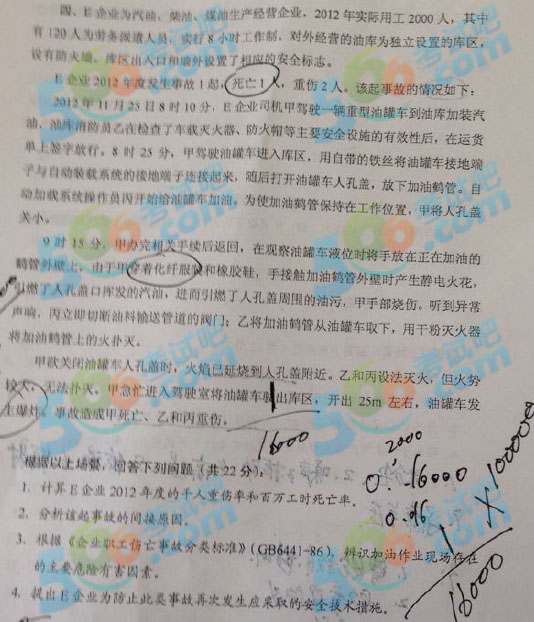 四、E 企业为汽油、柴油、煤油生产经营企业，2012 年实际用工 2000 人，其中
有 120 人为劳务派遣人员，实行 8 小时工作制，对外经营的油库为独立设置的库区，
设有防火墙。库区出入口和墙外设置了相应的安全标志。
E 企业 2012 年度发生事故 1 起，死亡 1 人，重伤 2 人。该起事故的情况如下：
2012 年 11 月 25 日 8 时 10 分，E 企业司机甲驾驶一辆重型油罐车到油库加装汽
油，油库消防员乙在检查了车载灭火器、防火帽等主要安全设施的有效性后，在运货
单上签字放行。8 时 25 分，甲驾驶油罐车进入库区，用自带的铁丝将油罐车接地端
子与自动装载系统的接地端子连接起来，随后打开油罐车人孔盖，放下加油鹤管。自
动加载系统操作员丙开始给油罐车加油，为使加油鹤管保持在工作位置，甲将人孔盖
关小。
9 时 15 分，甲办完相关手续后返回，在观察油罐车液位时将手放在正在加油的
鹤管外壁上，由于甲穿着化纤服装和橡胶鞋，手接触加油鹤管外壁时产生静电火花，
引燃了人孔盖口挥发的汽油，进而引燃了人孔盖周围的油污，甲手部烧伤，听到异常
声响，丙立即切断油料输送管道的阀门；乙将加油鹤管从油罐车取下，用干粉灭火器
将加油鹤管上的火扑灭。
甲欲关闭油罐车人孔盖时，火焰已延烧到人孔盖附近。乙和丙设法灭火，但火势
较大，无法扑灭。甲急忙进入驾驶室将油罐车驶出库区，开出 25m 左右，油罐车发
生爆炸，事故造成甲死亡、乙和丙重伤。
16000
2000
根据以上场景，回答下列问题（共 22 分）：
0.16000
1. 计算 E 企业 2012 年度的千人重伤率和百万工时死亡率。
0.16
2. 分析该起事故的间接原因。
1 × 1000000
3. 根据《企业职工伤亡事故分类标准》（GB6441-86），辨识加油作业现场存在
的主要危险有害因素。
16000
4. 提出 E 企业为防止此类事故再次发生应采取的安全技术措施。
566考试吧
.com